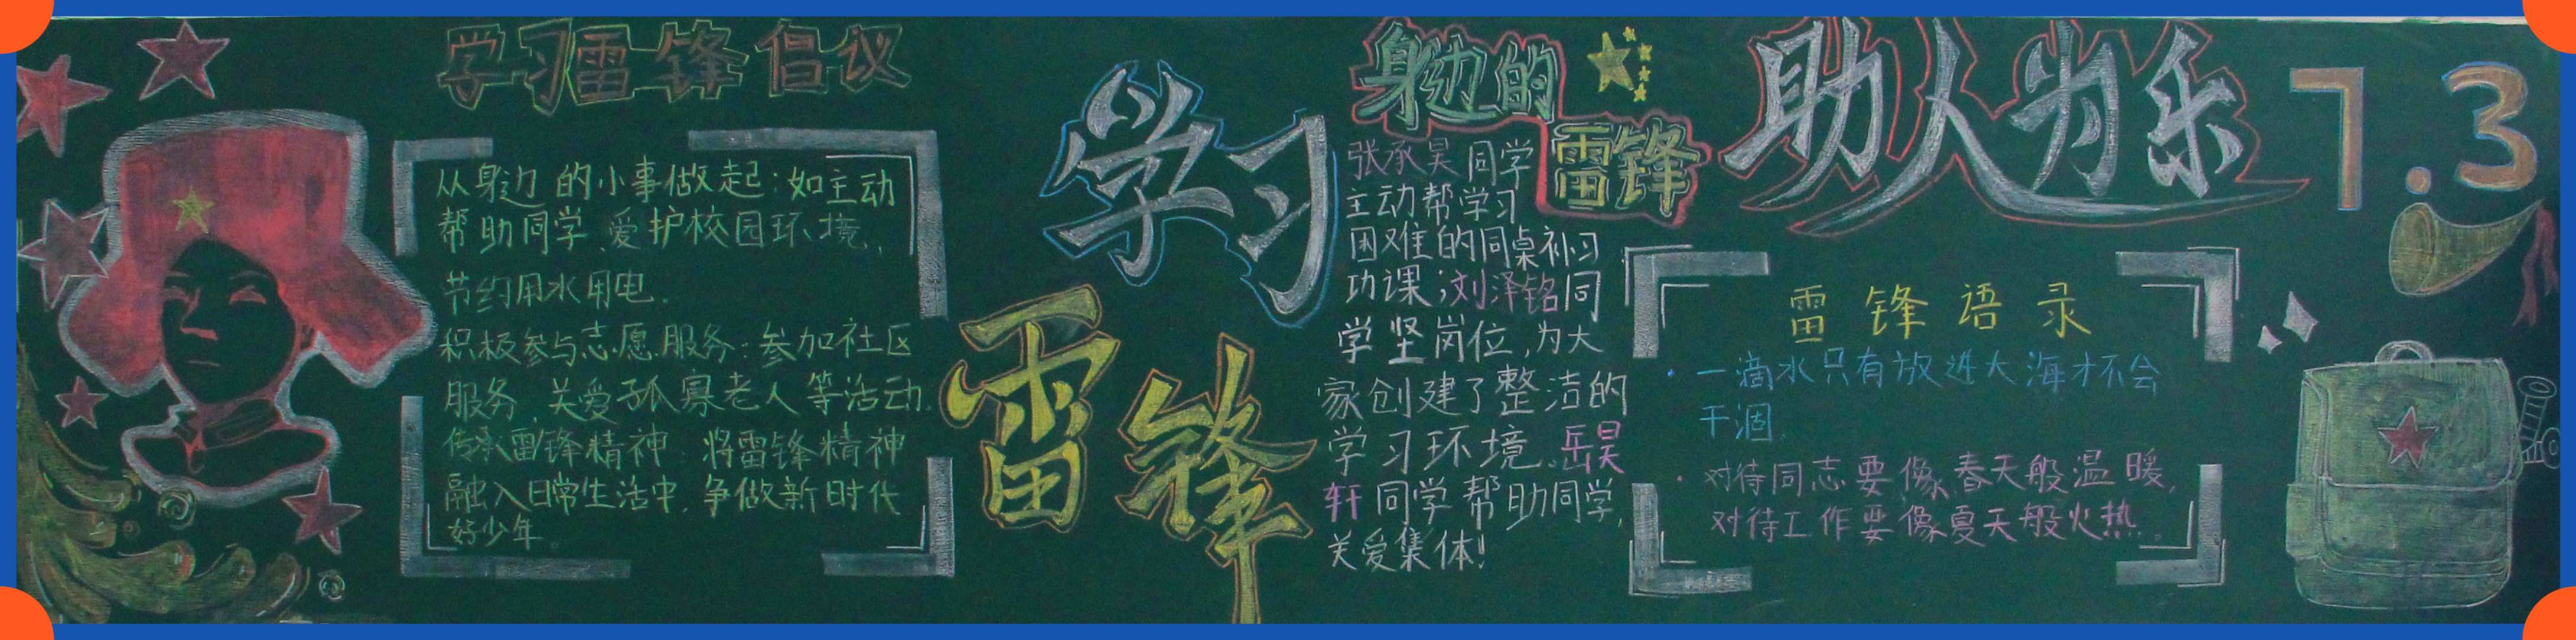 学习雷锋倡议
从身边的小事做起：如主动
帮助同学、爱护校园环境，
节约用水用电。
积极参与志愿服务：参加社区
服务，关爱孤寡老人等活动。
传承雷锋精神：将雷锋精神
融入日常生活中，争做新时代
好少年。
学习
雷锋
身边的
雷锋
张承昊同学
主动帮学习
困难的同桌补习
功课；刘泽铭同
学坚岗位，为大
家创建了整洁的
学习环境。岳昊
轩同学帮助同学，
关爱集体！
助人为乐
7.3
雷锋语录
·一滴水只有放进大海才不会
干涸。
·对待同志要像春天般温暖，
对待工作要像夏天般火热。